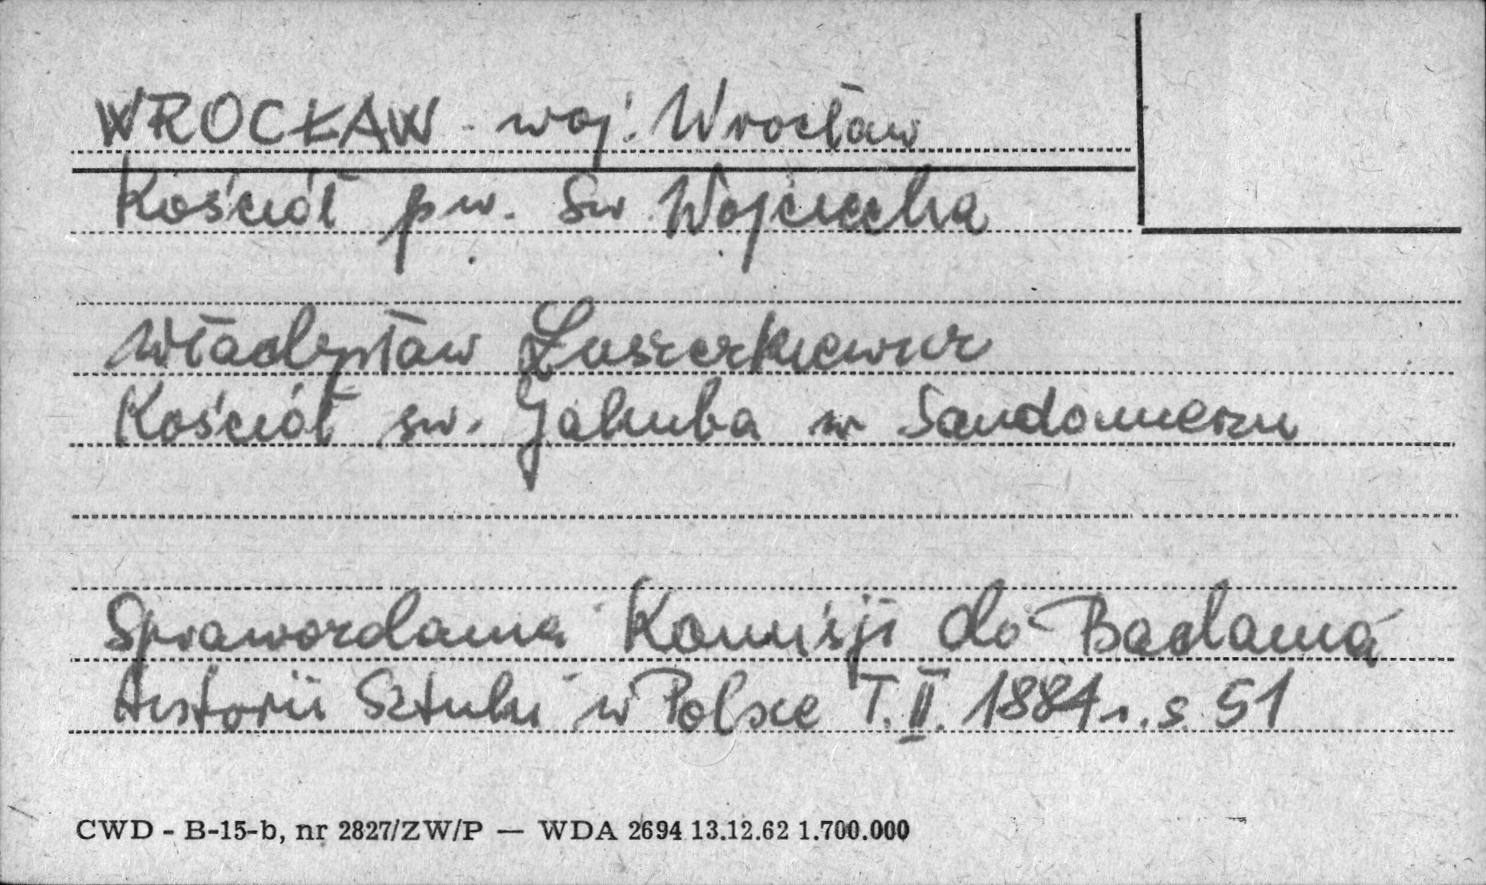 WROCŁAW - woj. Wrocław
Kościół pw. Św. Wojciecha
Władysław Łuszczkiewicz
Kościół św. Jakuba w Sandomierzu
Sprawozdania Komisji do Badania
Historii Sztuki w Polsce T. II. 1884 r. s. 51
CWD - B-15-b, nr 2827/ZW/P — WDA 2694 13.12.62 1.700.000